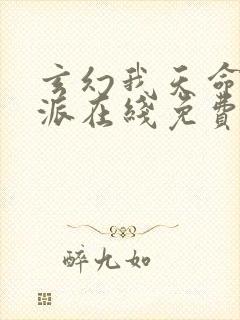 玄幻我天命
派在线免费
醉九如